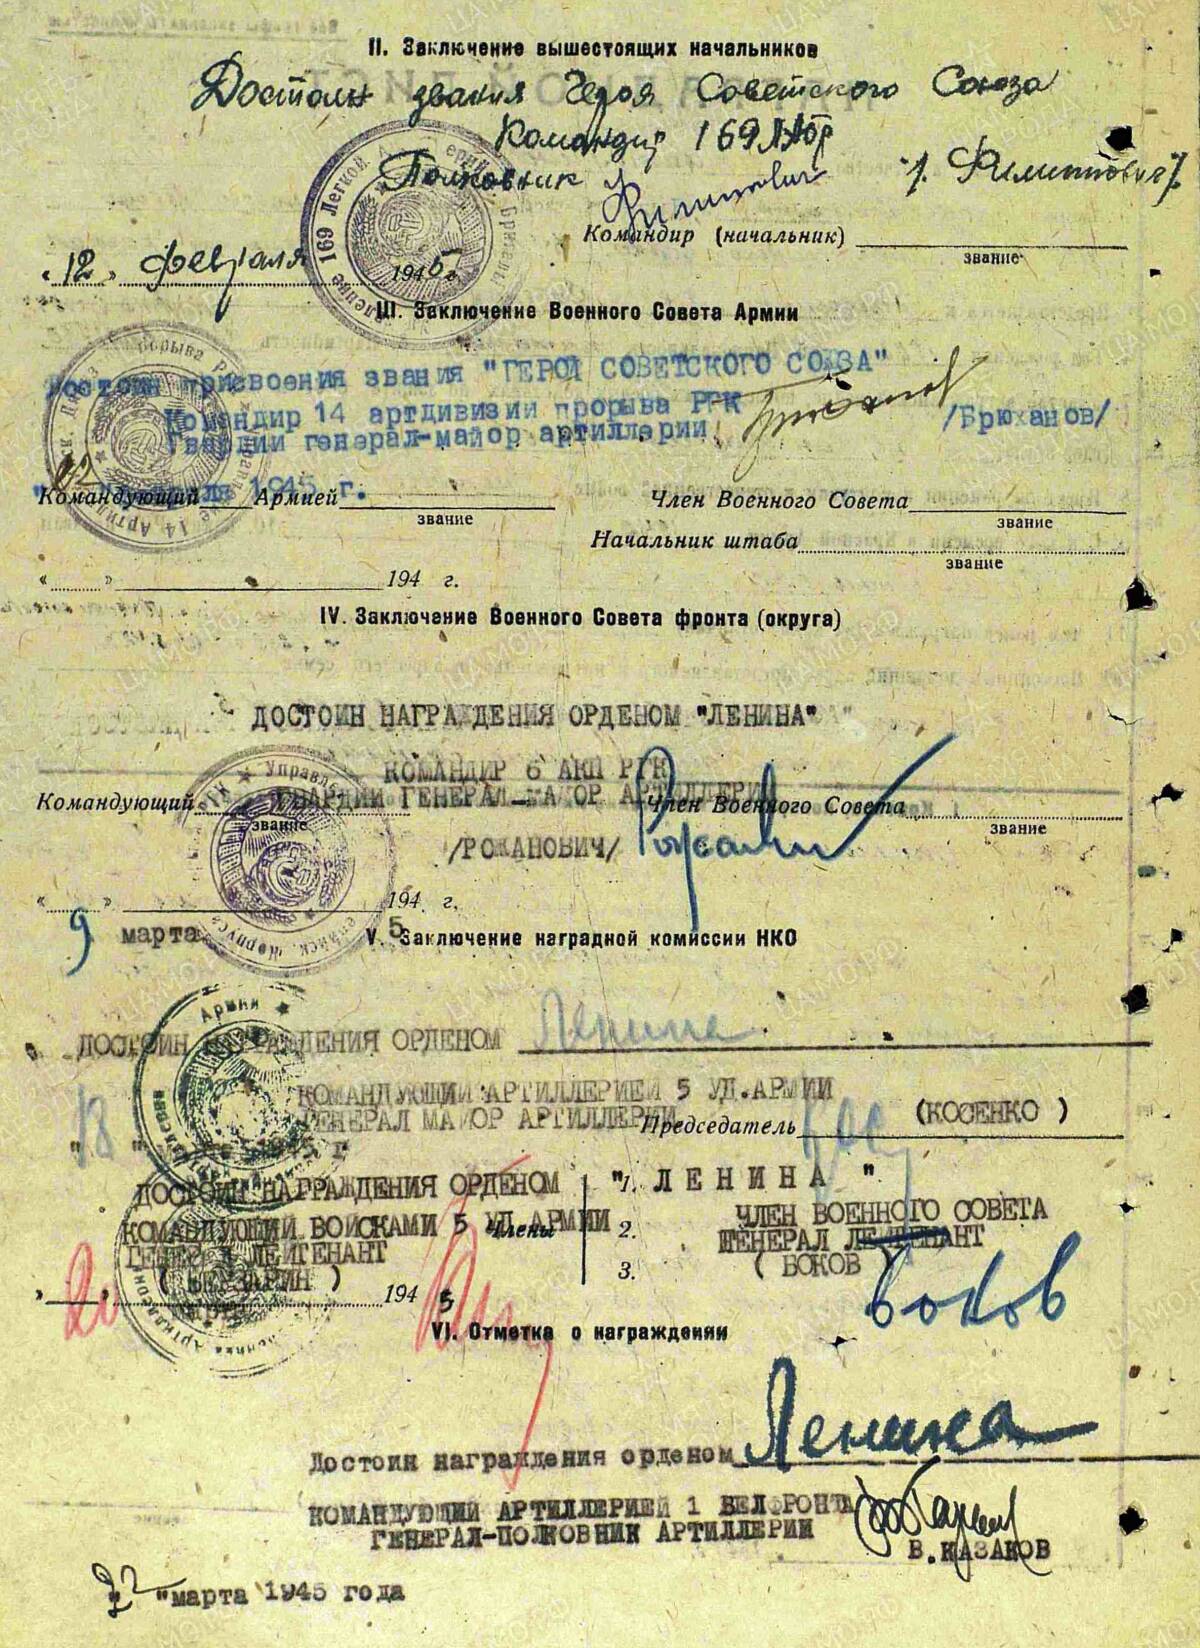 II. Заключение вышестоящих начальников
Достоин звания Героя Советского Союза
Командир 169 ЛАБр
Полковник /. Филиппович /.
Командир (начальник)
звание
"12" февраля 1945 г.
III. Заключение Военного Совета Армии
Достоин присвоения звания "ГЕРОЙ СОВЕТСКОГО СОЮЗА"
Командир 14 артдивизии прорыва РГК
Гвардии генерал-майор артиллерии /Брюханов/
1945 г.
Командующий Армией Член Военного Совета
звание звание
Начальник штаба
звание
" " 194 г.
IV. Заключение Военного Совета фронта (округа)
ДОСТОИН НАГРАЖДЕНИЯ ОРДЕНОМ "ЛЕНИНА"
КОМАНДИР 6 АКП РГК
ГВАРДИИ ГЕНЕРАЛ-МАЙОР АРТИЛЛЕРИИ
Командующий Член Военного Совета
звание звание
/РОЖАНОВИЧ/
" " 194 г.
9 марта 5
V. Заключение наградной комиссии НКО
ДОСТОИН НАГРАЖДЕНИЯ ОРДЕНОМ Ленина
КОМАНДУЮЩИЙ АРТИЛЛЕРИЕЙ 5 УД.АРМИИ
ГЕНЕРАЛ МАЙОР АРТИЛЛЕРИИ (КОСЕНКО )
Председатель
18
ДОСТОИН НАГРАЖДЕНИЯ ОРДЕНОМ "ЛЕНИНА "
1.
КОМАНДУЮЩИЙ ВОЙСКАМИ 5 УД.АРМИИ ЧЛЕН ВОЕННОГО СОВЕТА
Члены 2.
ГЕНЕРАЛ ЛЕЙТЕНАНТ ГЕНЕРАЛ ЛЕЙТЕНАНТ
( БЕРЗАРИН ) 3. ( БОКОВ )
20 194 5 Боков
VI. Отметка о награждении
Достоин награждения орденом Ленина
КОМАНДУЮЩИЙ АРТИЛЛЕРИЕЙ 1 БЕЛ.ФРОНТА
ГЕНЕРАЛ-ПОЛКОВНИК АРТИЛЛЕРИИ
В.КАЗАКОВ
"22" марта 1945 года